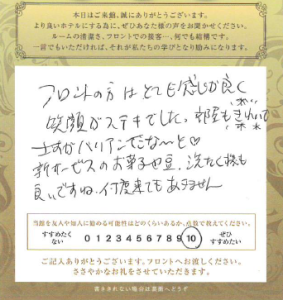 本日はご来館、誠にありがとうございます。
より良いホテルにする為に、ぜひあなた様の声をお聞かせください。
ルームの清潔さ、フロントでの接客…何でも結構です。
一言でもいただければ、それが私たちの学びとなり励みになります。
フロントの方はとても感じが良く
笑顔がステキでした。部屋もきれいで
さすがバリアンだな〜と♡
新サービスのお菓子や豆、洗たく機も
良いですね。何度来てもあきません
当館を友人や知人に勧める可能性はどのくらいあるか、点数で教えてください。
すすめたく
ない
0 1 2 3 4 5 6 7 8 9 10
ぜひ
すすめたい
ご記入ありがとうございます。フロントへお渡しください。
ささやかなお礼をさせていただきます。
書ききれない場合は裏面へどうぞ